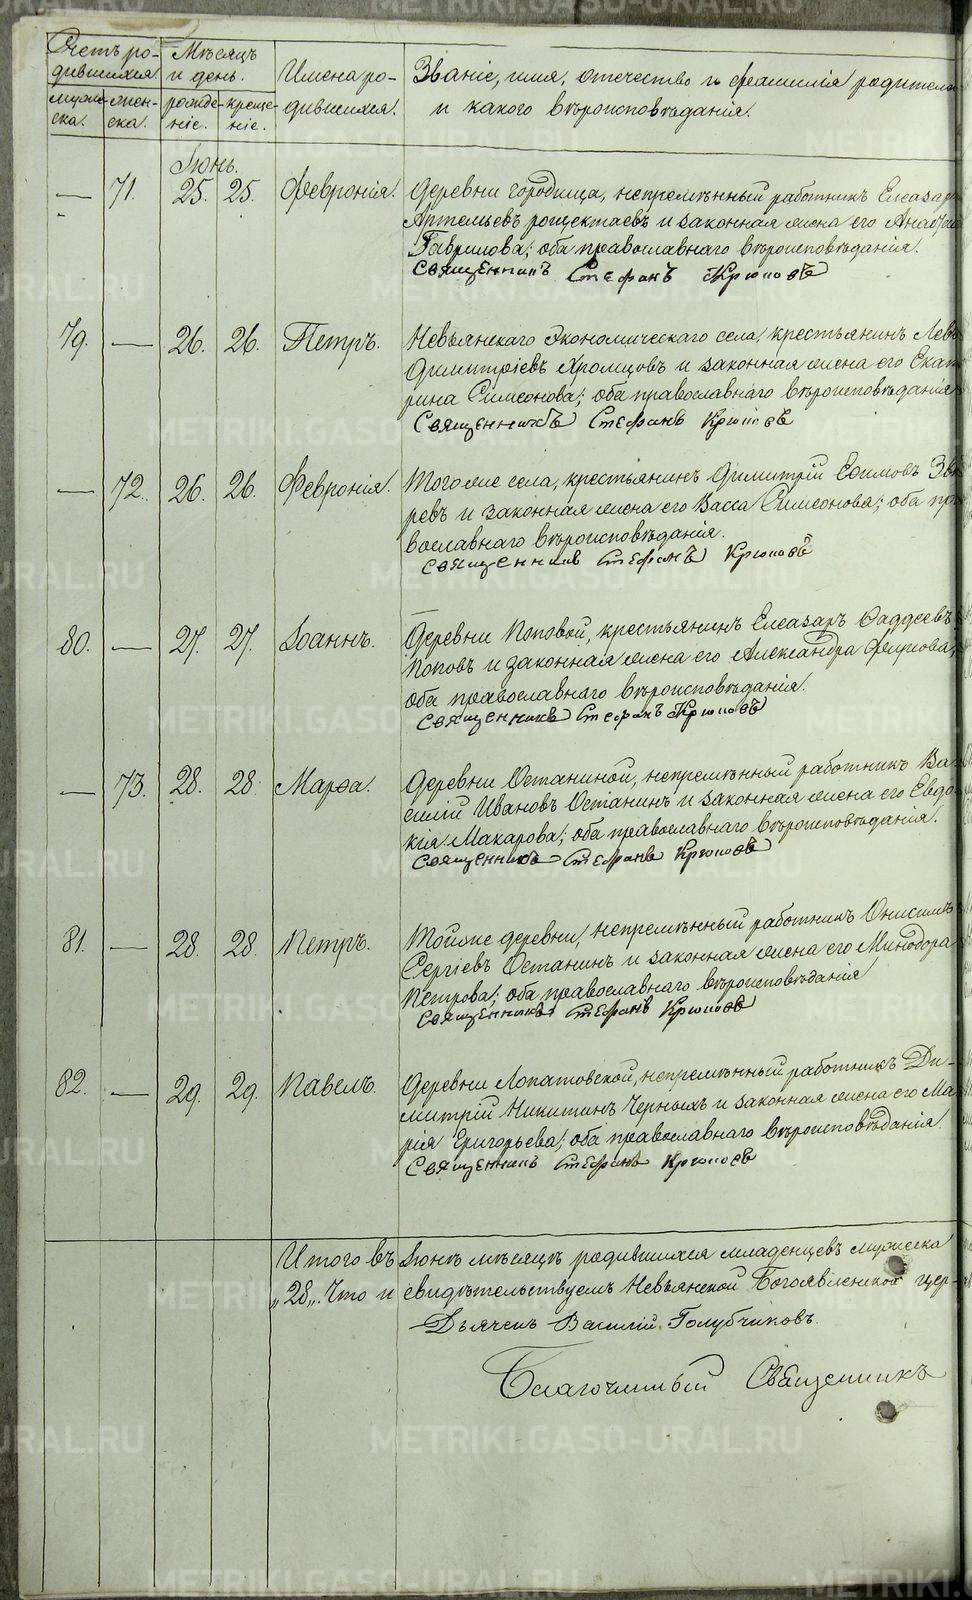 Счетъ ро-
дившихся
Мѣсяцъ
и день.
Имена ро-
дившихся.
Званіе, имя, отечество и фамилія родителей
и какого вѣроисповѣданія.
муже-
ска.
жен-
ска.
рожде-
ніе.
креще-
ніе.
Іюнь.
— 71. 25. 25. Февронія. Деревни Городища, непремѣнный работникъ Елеазаръ
Артемьевъ и законная жена его
Гаврилова; оба православнаго вѣроисповѣданія.
Священникъ Стефанъ Крюковъ
79. — 26. 26. Петръ. Невьянскаго Экономическаго села, крестьянинъ Левъ
Димитріевъ Хромцовъ и законная жена его Екате
рина Симеонова; оба православнаго вѣроисповѣданія
Священникъ Стефанъ Крюковъ
— 72. 26. 26. Февронія. Тогоже села, крестьянинъ Димитрій Ефимовъ Звѣ
ревъ и законная жена его Васса Симеонова; оба пра
вославнаго вѣроисповѣданія.
Священникъ Стефанъ Крюковъ
80. — 27. 27. Іоаннъ. Деревни Поповой, крестьянинъ Елеазаръ Фаддеевъ
Поповъ и законная жена его Александра
оба православнаго вѣроисповѣданія.
Священникъ Стефанъ Крюковъ
— 73. 28. 28. Марѳа. Деревни Останиной, непремѣнный работникъ Ва
силій Ивановъ Останинъ и законная жена его Евдо
кія Макарова; оба православнаго вѣроисповѣданія.
Священникъ Стефанъ Крюковъ
81. — 28. 28. Петръ. Тойже деревни, непремѣнный работникъ Онисимъ
Сергіевъ Останинъ и законная жена его Минодора
Петрова; оба православнаго вѣроисповѣданія
Священникъ Стефанъ Крюковъ
82. — 29. 29. Павелъ. Деревни Лопатовской, непремѣнный работникъ Ди-
митрій Никитинъ Черныхъ и законная жена его Ма
рія Григорьева; оба православнаго вѣроисповѣданія.
Священникъ Стефанъ Крюковъ
Итого въ Іюнѣ мѣсяцѣ родившихся младенцевъ мужеска
„28„. Что и свидѣтельствуемъ Невьянской Богоявленской цер-
Дьячекъ Василій Голубчиковъ.
Благочинный Священникъ
METRIKI.GASO-URAL.RU